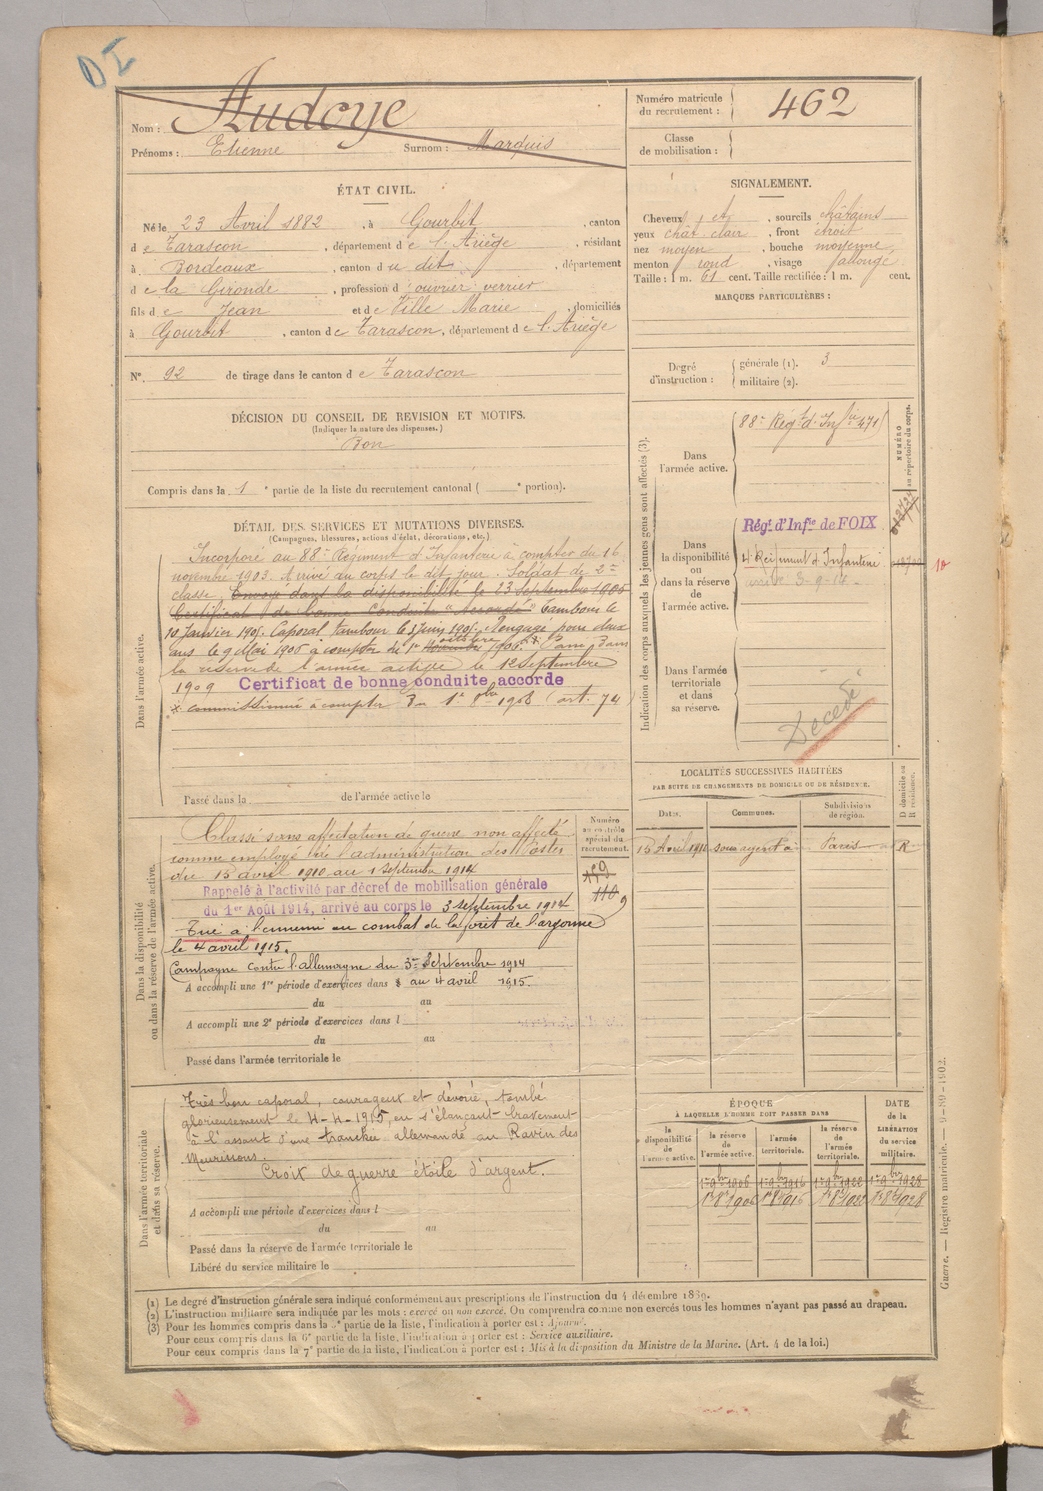 D I
Nom : Audoye
Prénoms : Etienne Surnom : Marquis
Numéro matricule du recrutement : 462
Classe de mobilisation :
ÉTAT CIVIL.
Né le 23 Avril 1882, à Gourbit, canton
de Tarascon, département de l'Ariège, résidant
à Bordeaux, canton du dit, département
de la Gironde, profession d'ouvrier verrier
fils de Jean et de Ville Marie, domiciliés
à Gourbit, canton de Tarascon, département de l'Ariège
N° 92 de tirage dans le canton de Tarascon
SIGNALEMENT.
Cheveux et, sourcils châtains
yeux chât clair, front étroit
nez moyen, bouche moyenne,
menton rond, visage allongé
Taille : 1 m. 61 cent. Taille rectifiée : 1 m. cent.
MARQUES PARTICULIÈRES :
Degré d'instruction : générale (1). 3
militaire (2).
DÉCISION DU CONSEIL DE REVISION ET MOTIFS.
(Indiquer la nature des dispenses.)
Bon
Compris dans la 1e partie de la liste du recrutement cantonal ( e portion).
DÉTAIL DES SERVICES ET MUTATIONS DIVERSES.
(Campagnes, blessures, actions d'éclat, décorations, etc.)
Dans l'armée active.
Incorporé au 88e Régiment d'Infanterie à compter du 16
novembre 1903. Arrivé au corps le dit jour. Soldat de 2e
classe, Envoyé dans la disponibilité le 23 Septembre 1905
Certificat de bonne conduite "accordé" Tambour le
10 Janvier 1905. Caporal tambour le 3 Juin 1905. Rengagé pour deux
ans le 9 Mai 1906 à compter du 1er octobre Novembre 1906. x Passé dans
la réserve de l'armée active le 12 Septembre
1909 Certificat de bonne conduite accordé
x commissionné à compter du 1er 8bre 1908 (art. 74
Passé dans la de l'armée active le
Indication des corps auxquels les jeunes gens sont affectés (3).
NUMÉRO au répertoire du corps.
Dans l'armée active.
88e Régt d'Infie 471
Dans la disponibilité ou dans la réserve de l'armée active.
Régt d'Infie de FOIX
4 Régiment d'Infanterie
arrivé 3-9-14
Dans l'armée territoriale et dans sa réserve.
Décédé
LOCALITÉS SUCCESSIVES HABITÉES
PAR SUITE DE CHANGEMENTS DE DOMICILE OU DE RÉSIDENCE.
Dates. Communes. Subdivisions de région. D domicile ou R résidence.
15 Avril 1910 sous agent à Paris R
Dans la disponibilité ou dans la réserve de l'armée active.
Numéro au contrôle spécial du recrutement.
Classé sans affectation de guerre non affecté
comme employé de l'administration des Postes
du 15 avril 1910 au 1 septembre 1914
Rappelé à l'activité par décret de mobilisation générale
du 1er Août 1914, arrivé au corps le 3 septembre 1914
Tué à l'ennemi au combat de la forêt de l'argonne
le 4 avril 1915.
Campagne contre l'allemagne du 3 Septembre 1914
A accompli une 1re période d'exercices dans au 4 avril 1915.
du au
A accompli une 2e période d'exercices dans l
du au
Passé dans l'armée territoriale le
Dans l'armée territoriale et dans sa réserve.
Très bon caporal, courageux et dévoué, tombé
glorieusement le 4-4-1915, en s'élançant bravement
à l'assaut d'une tranchée allemande au Ravin des
Meurissons.
Croix de guerre étoile d'argent.
A accompli une période d'exercices dans l
du au
Passé dans la réserve de l'armée territoriale le
Libéré du service militaire le
ÉPOQUE
À LAQUELLE L'HOMME DOIT PASSER DANS
la disponibilité de l'armée active. la réserve de l'armée active. l'armée territoriale. la réserve de l'armée territoriale.
DATE de la LIBÉRATION du service militaire.
1er 9bre 1906 1er 9bre 1916 1er 9bre 1922 1er 9bre 1928
1er 8bre 1906 1er 8bre 1916 1er 8bre 1922 1er 8bre 1928
Guerre. — Registre matricule. — 9-89-1902.
(1) Le degré d'instruction générale sera indiqué conformément aux prescriptions de l'instruction du 4 décembre 1889.
(2) L'instruction militaire sera indiquée par les mots : exercé ou non exercé. On comprendra comme non exercés tous les hommes n'ayant pas passé au drapeau.
(3) Pour les hommes compris dans la partie de la liste, l'indication à porter est : Ajourné.
Pour ceux compris dans la 6e partie de la liste, l'indication à porter est : Service auxiliaire.
Pour ceux compris dans la 7e partie de la liste, l'indication à porter est : Mis à la disposition du Ministre de la Marine. (Art. 4 de la loi.)